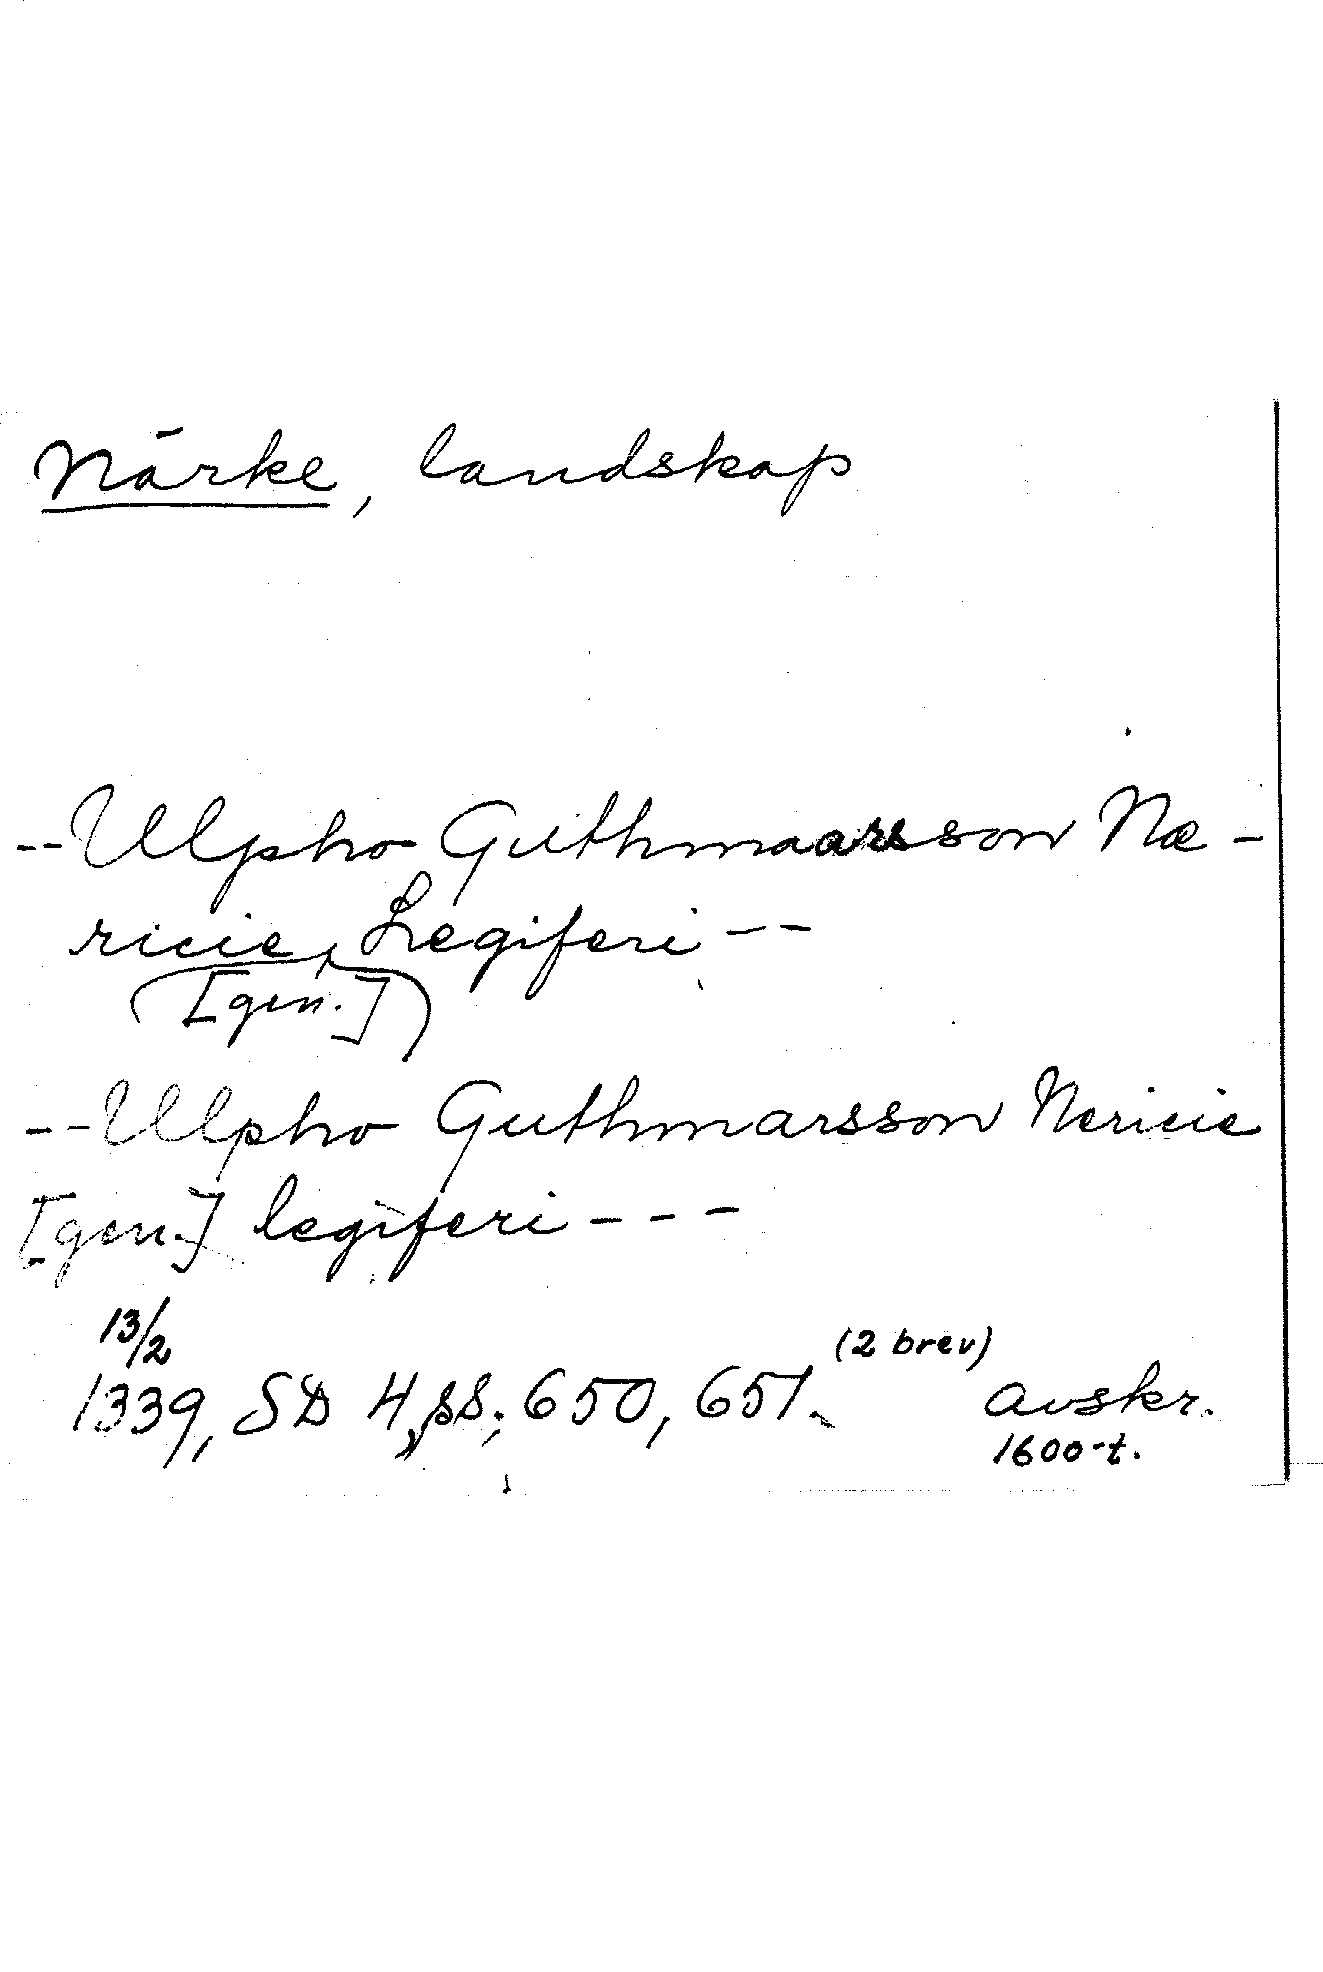 Närke, landskap
--Ulpho Guthmaarsson Næ-
ricie, Legiferi--
[gen.]
--Ulpho Guthmarsson Nericie
[gen.] legiferi---
13/2
1339, SD 4, ss. 650, 651. (2 brev) avskr.
1600-t.